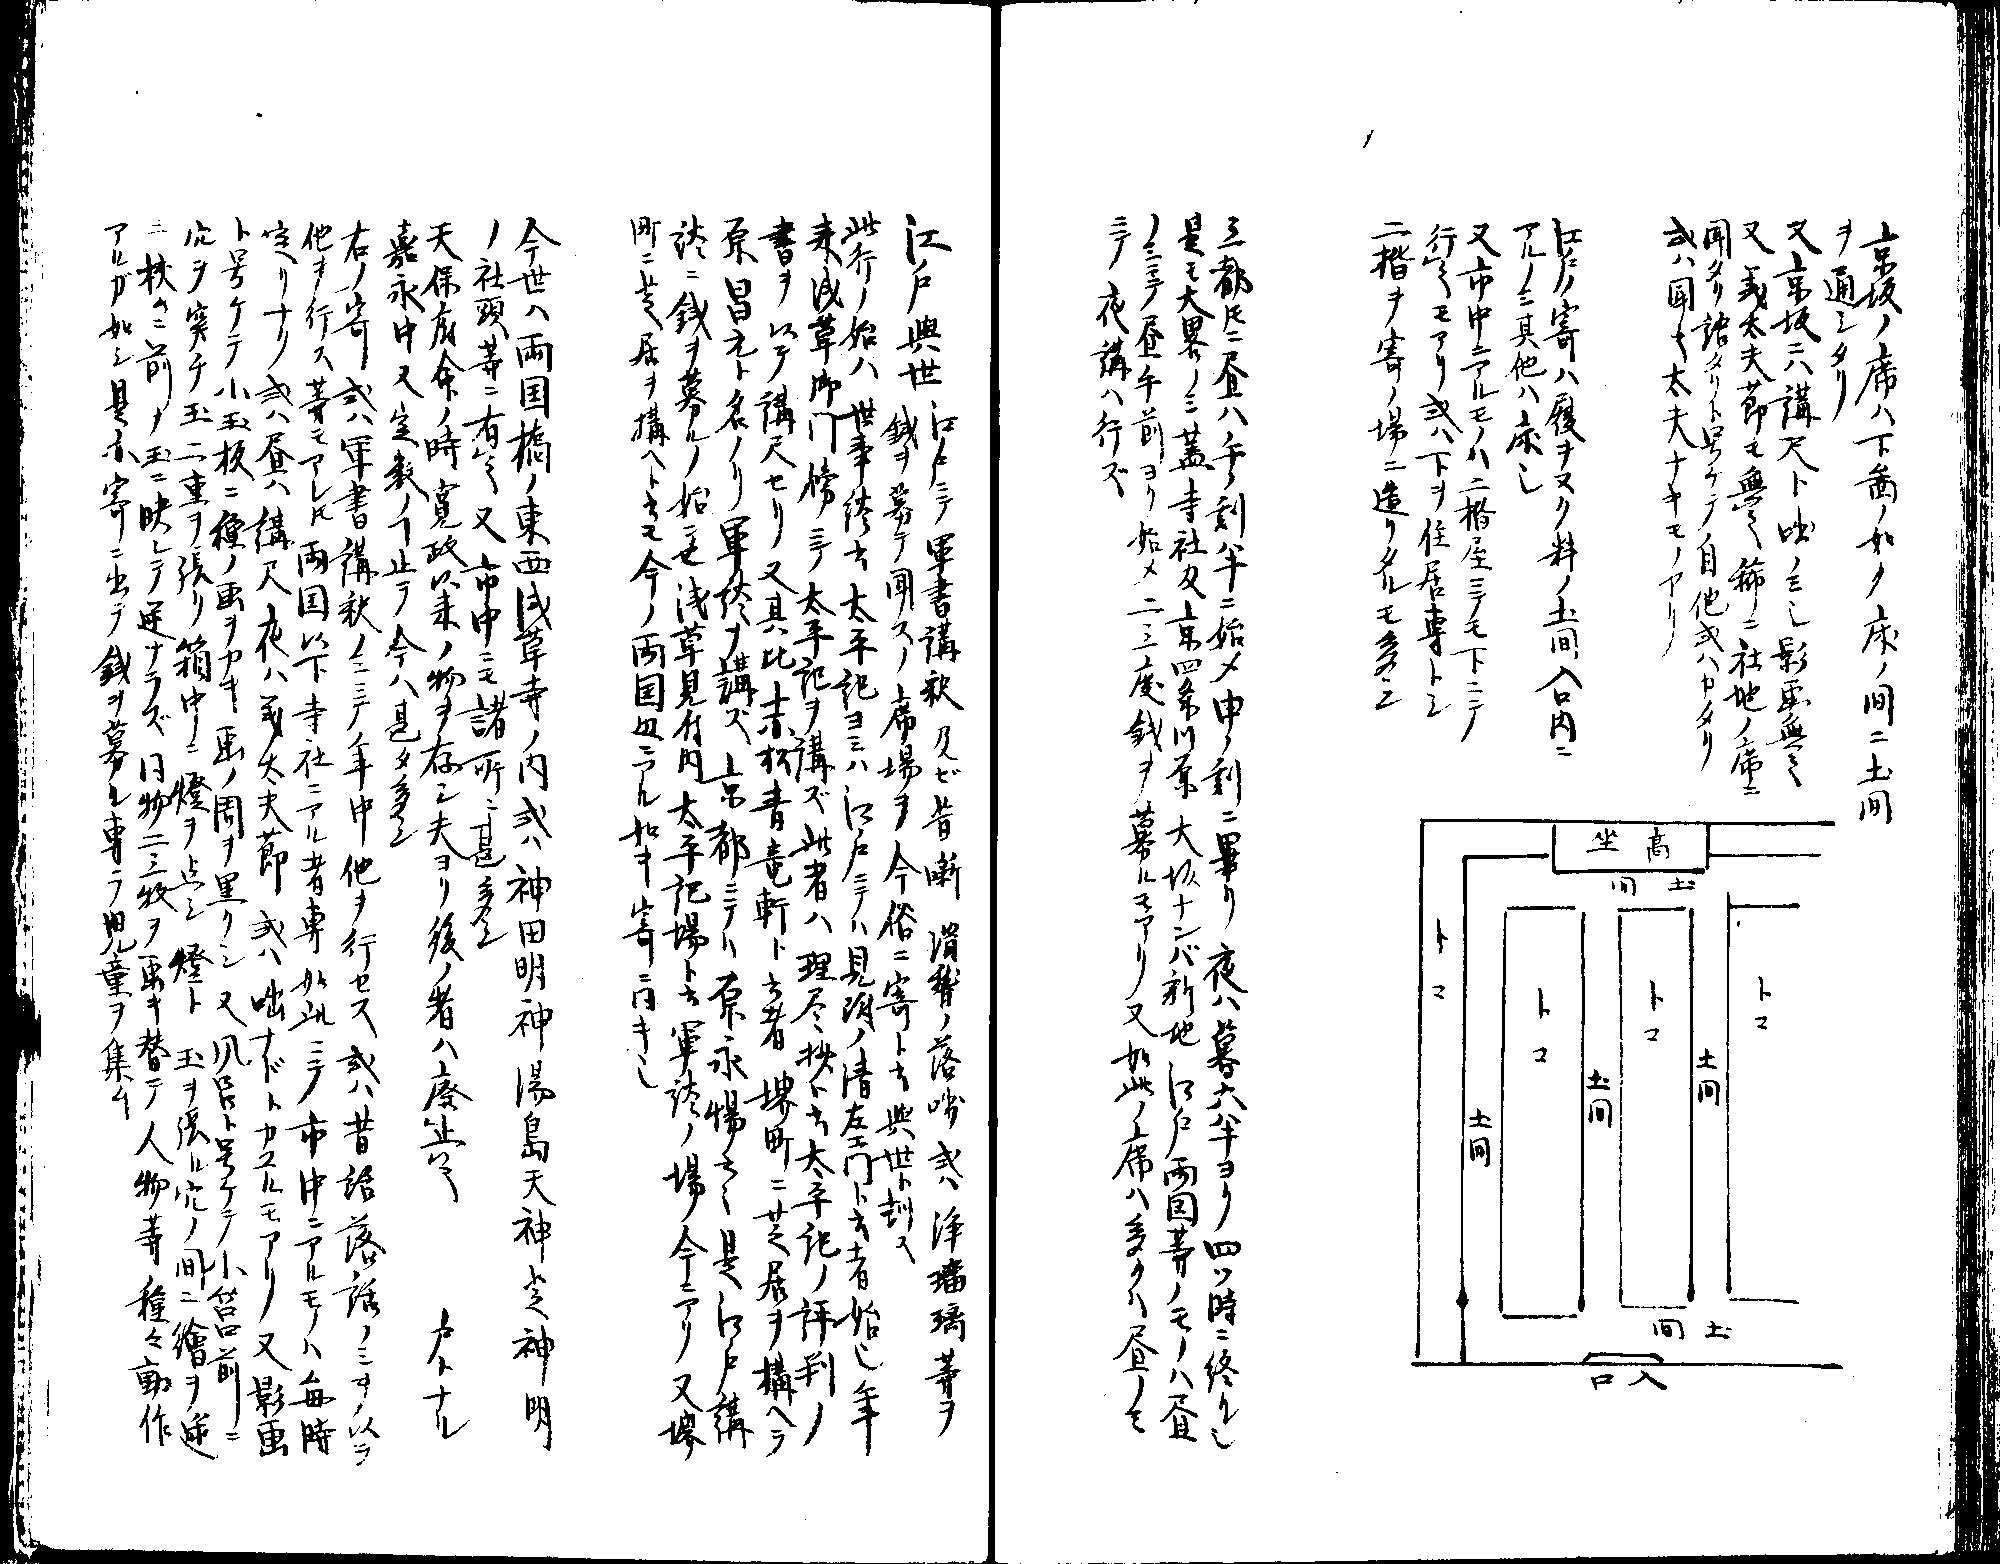 京坂ノ席ハ下畵ノ如ク床ノ間ニ土間
ヲ通シタリ
又京坂ニハ講尺ト咄ノミ也影画無之
又義太夫節モ無之稀ニ社地ノ席ニ
聞タリ語タリト号ケテノ自他或ハカタリ
或ハ聞キ太夫ナキモノアリ
江戸ノ寄ハ履ヲヌク料ノ土間入口内ニ
アルノミ其他ハ床也
又市中ニアルモノハ二楷屋ニテモ下ニテ
行之モアリ或ハ下ヲ住居専トシ
二楷ヲ寄ノ場ニ造リタルモ多之
高坐
土間
トコ
トコ
トコ
トコ
土間
土間
土間
土間
入口
三都トモニ昼ハ午ノ刻半ニ始メ申ノ刻ニ畢リ夜ハ暮六半ヨリ四ツ時ニ終ル也
是モ大畧ノミ蓋寺社及京四条川原大坂ナンバ新地江戸両国等ノモノハ昼
ノミニテ昼午前ヨリ始メ二三度銭ヲ募ルモアリ又如此ノ席ハ多クハ昼ノミ
ニテ夜講ハ行ズ
江戸與世 江戸ニテ軍書講釈及ビ昔噺滑稽ノ落咄或ハ浄瑠璃等ヲ
銭ヲ募テ聞スノ席場ヲ今俗ニ寄ト云與世ト訓ス
此行ノ始ハ世事終云太平記ヨミハ江戸ニテハ見附ノ清左エ門ト云者始也年
来浅草御門傍ニテ太平記ヲ講ズ此者ハ理尽抄ト云太平記ノ評判ノ
書ヲ以テ講尺セリ又其比赤松青竜軒ト云者堺町ニ芝居ヲ構ヘテ
原昌元ト名ノリ軍談ヲ講ズ京都ニテハ原永惕也是江戸講
談ニ銭ヲ募ルノ始也浅草見付内太平記場ト云軍談ノ場今ニアリ又堺
町ニ芝居ヲ構ヘト云モ今ノ両国ニアル如キ寄ニ同キ也
今世ハ両国橋ノ東西浅草寺ノ内或ハ神田明神湯島天神芝神明
ノ社頭等ニ有之又市中ニモ諸所ニ甚多シ
天保府命ノ時寛政以来ノ物ヲ存シ夫ヨリ後ノ者ハ廃止之 カトナル
嘉永中又定数ノ止テ今ハ甚タ多シ
右ノ寄或ハ軍書講釈ノミニテ年中他ヲ行セス或ハ昔話落語ノミヲ以テ
他ヲ行ス等モアレトモ両国以下寺社ニアル者専如此ニテ市中ニアルモノハ毎時
定リナク或ハ昼ハ講尺夜ハ義太夫節或ハ咄ナドトカユルモアリ又影画
ト号ケテ小玉板ニ種々ノ画ヲカキ画ノ周ヲ黒クシ又風呂ト号ケテ小筥前ニ
穴ヲ穿チ玉二重ヲ張リ箱中ニ燈ヲ点シ燈ト玉ヲ張ル穴ノ間ニ繪ヲ逆
ニ挟ミ前ノ玉ニ映シテ逆ナラズ同物二三枚ヲ画キ替テ人物等種々動作
アルガ如シ是亦寄ニ出テ銭ヲ募ル専ラ児童ヲ集ム